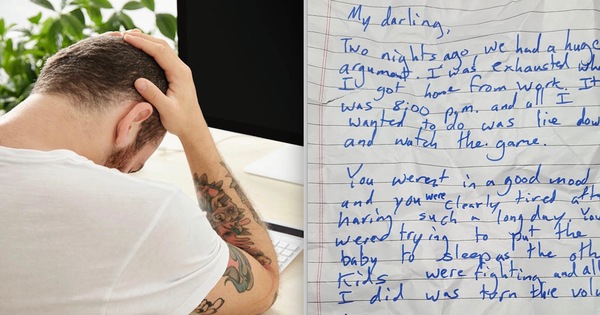 My darling,
Two nights ago we had a huge
argument. I was exhausted
I got home from work. It
was 8:00 p.m. and all I
wanted to do was lie
and watch the game.
You werent in a good mood
and you were clearly tired
having such a long day. You
were trying to put the
baby to sleep as the
kids were fighting and all
I did was turn the